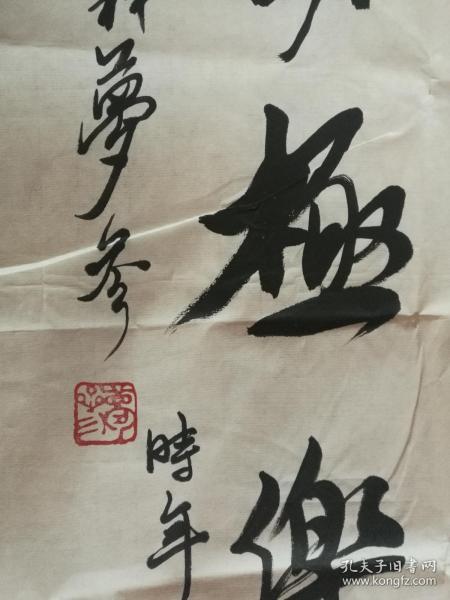 極樂
夢參
時年
孔夫子旧书网
www.kongfz.com